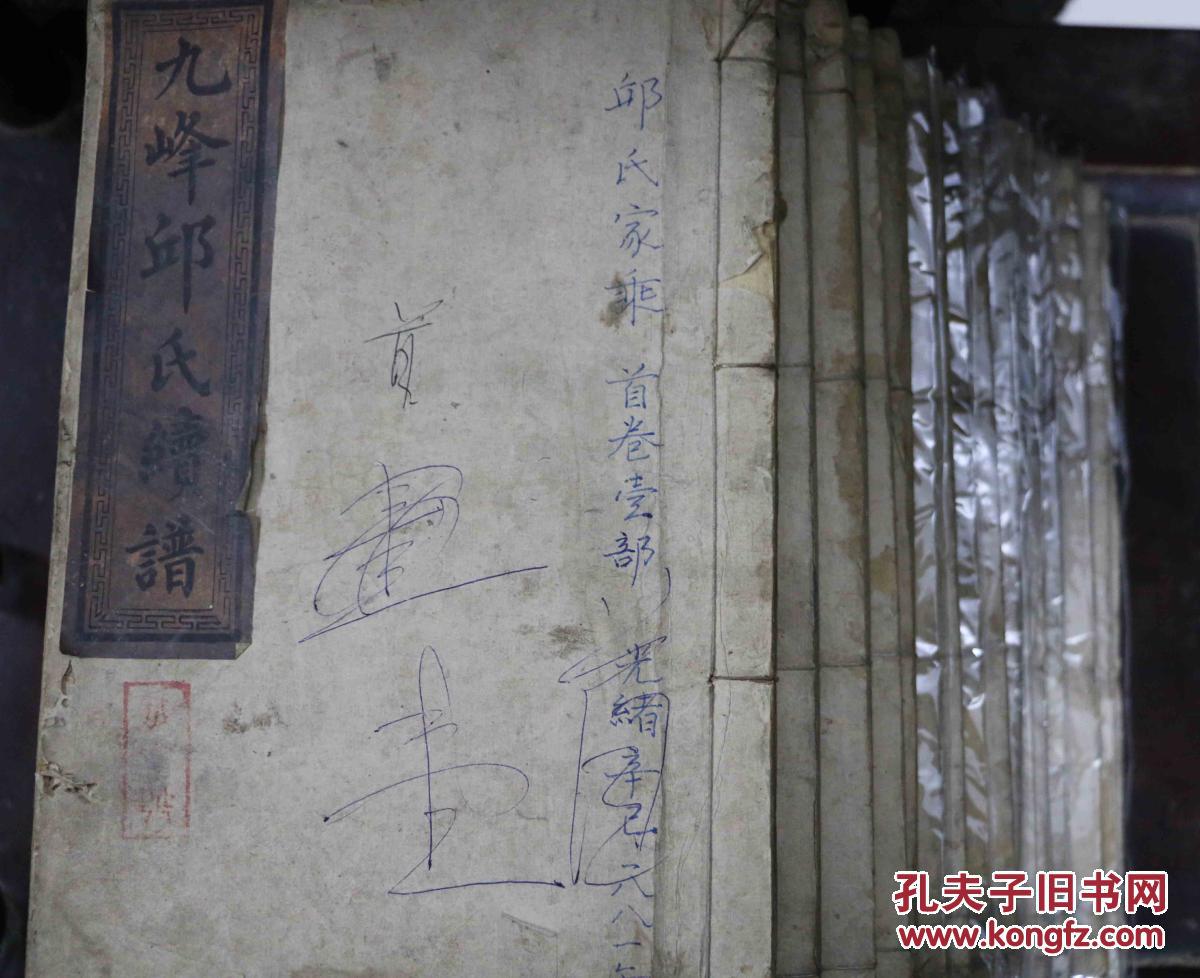 九峰邱氏續譜
邱氏家乘 首卷壹部
光緒辛巳
元八一年
首
孔夫子旧书网
www.kongfz.com